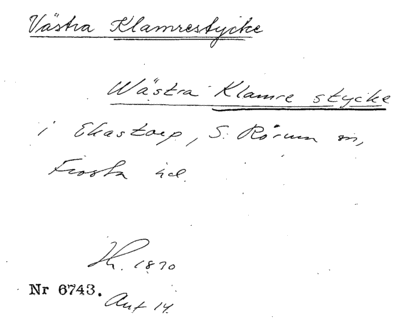 Västra Klamrestycke
Wästra Klamre stycke
i Ekastorp, S. Rörum sn,
Frosta hd.
Hr. 1870
Nr 6743.
Ant 14.